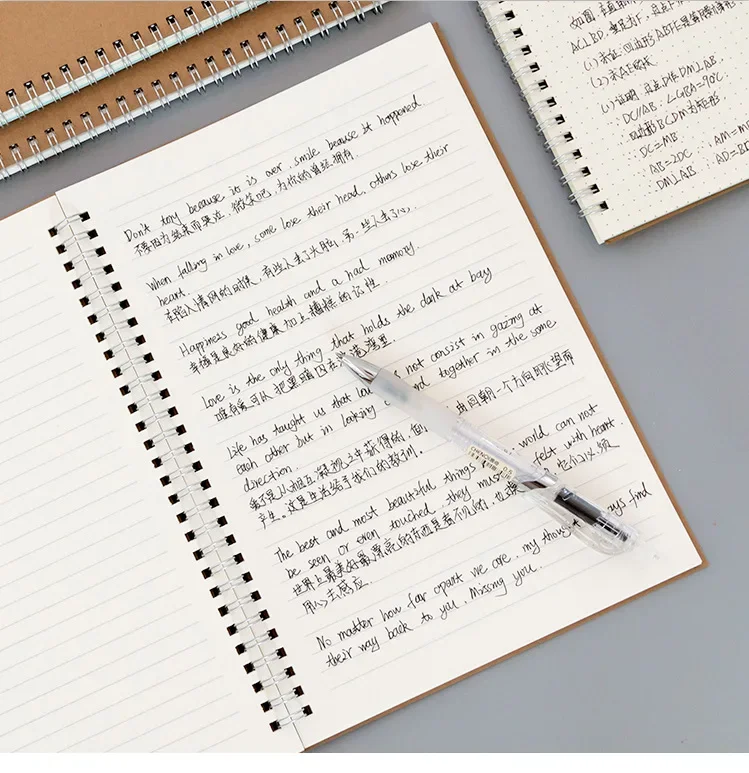 Don't tory because it is over, smile because it happened.
不要因为结束而哭泣，微笑吧，为你的曾经拥有.
When falling in love, some lose their head, others lose their
heart.
在陷入情网的时候，有些人丢了大脑，另一些人丢了心.
Happiness good health and a had mamory.
幸福是良好的健康加上糟糕的记性.
Love is the only thing that holds the dark at bay
唯有爱可以把黑暗囚在港湾里.
Life has taught us that not consist in gazing at
each other but in looking together in the same
direction.
爱不是从相互凝视之中获得的，而 由同朝一个方向的张望而
产生。这是生活给予我们的教训。
The best and most beautiful things world can not
be seen or even touched, they mus felt with heart.
世界上最美好最漂亮的东西是看不见的，也摸 它们必须
用心去感应.
No matter how far apart we are, my thought ays find
their way back to you, Missing you.
如图，
AC⊥BD,
(1)求证：四边形ABFE是
(2)求AE的长
(1)证明 DM⊥AB
DC//AB ∠CBA=90°
四边形BCDM为矩形
∴ DC=MB
∵ AB=2DC ∴ AM=M
∵ DM⊥AB ∴ AD=BD
0.5